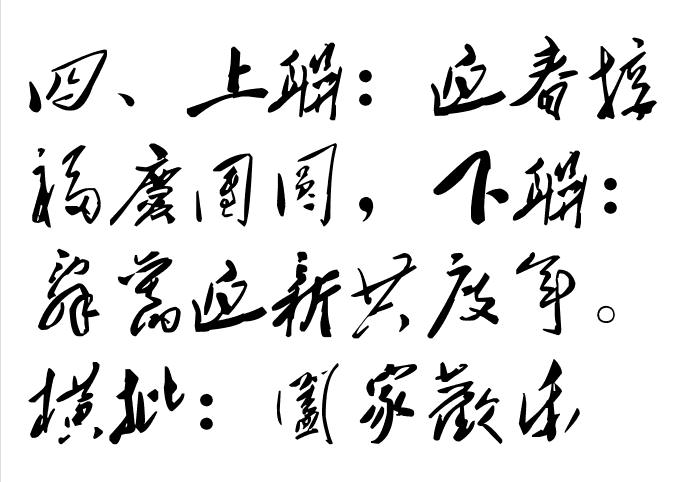 四、上聯：迎春接
福慶團圓，下聯：
辭舊迎新共度年。
橫批：闔家歡樂